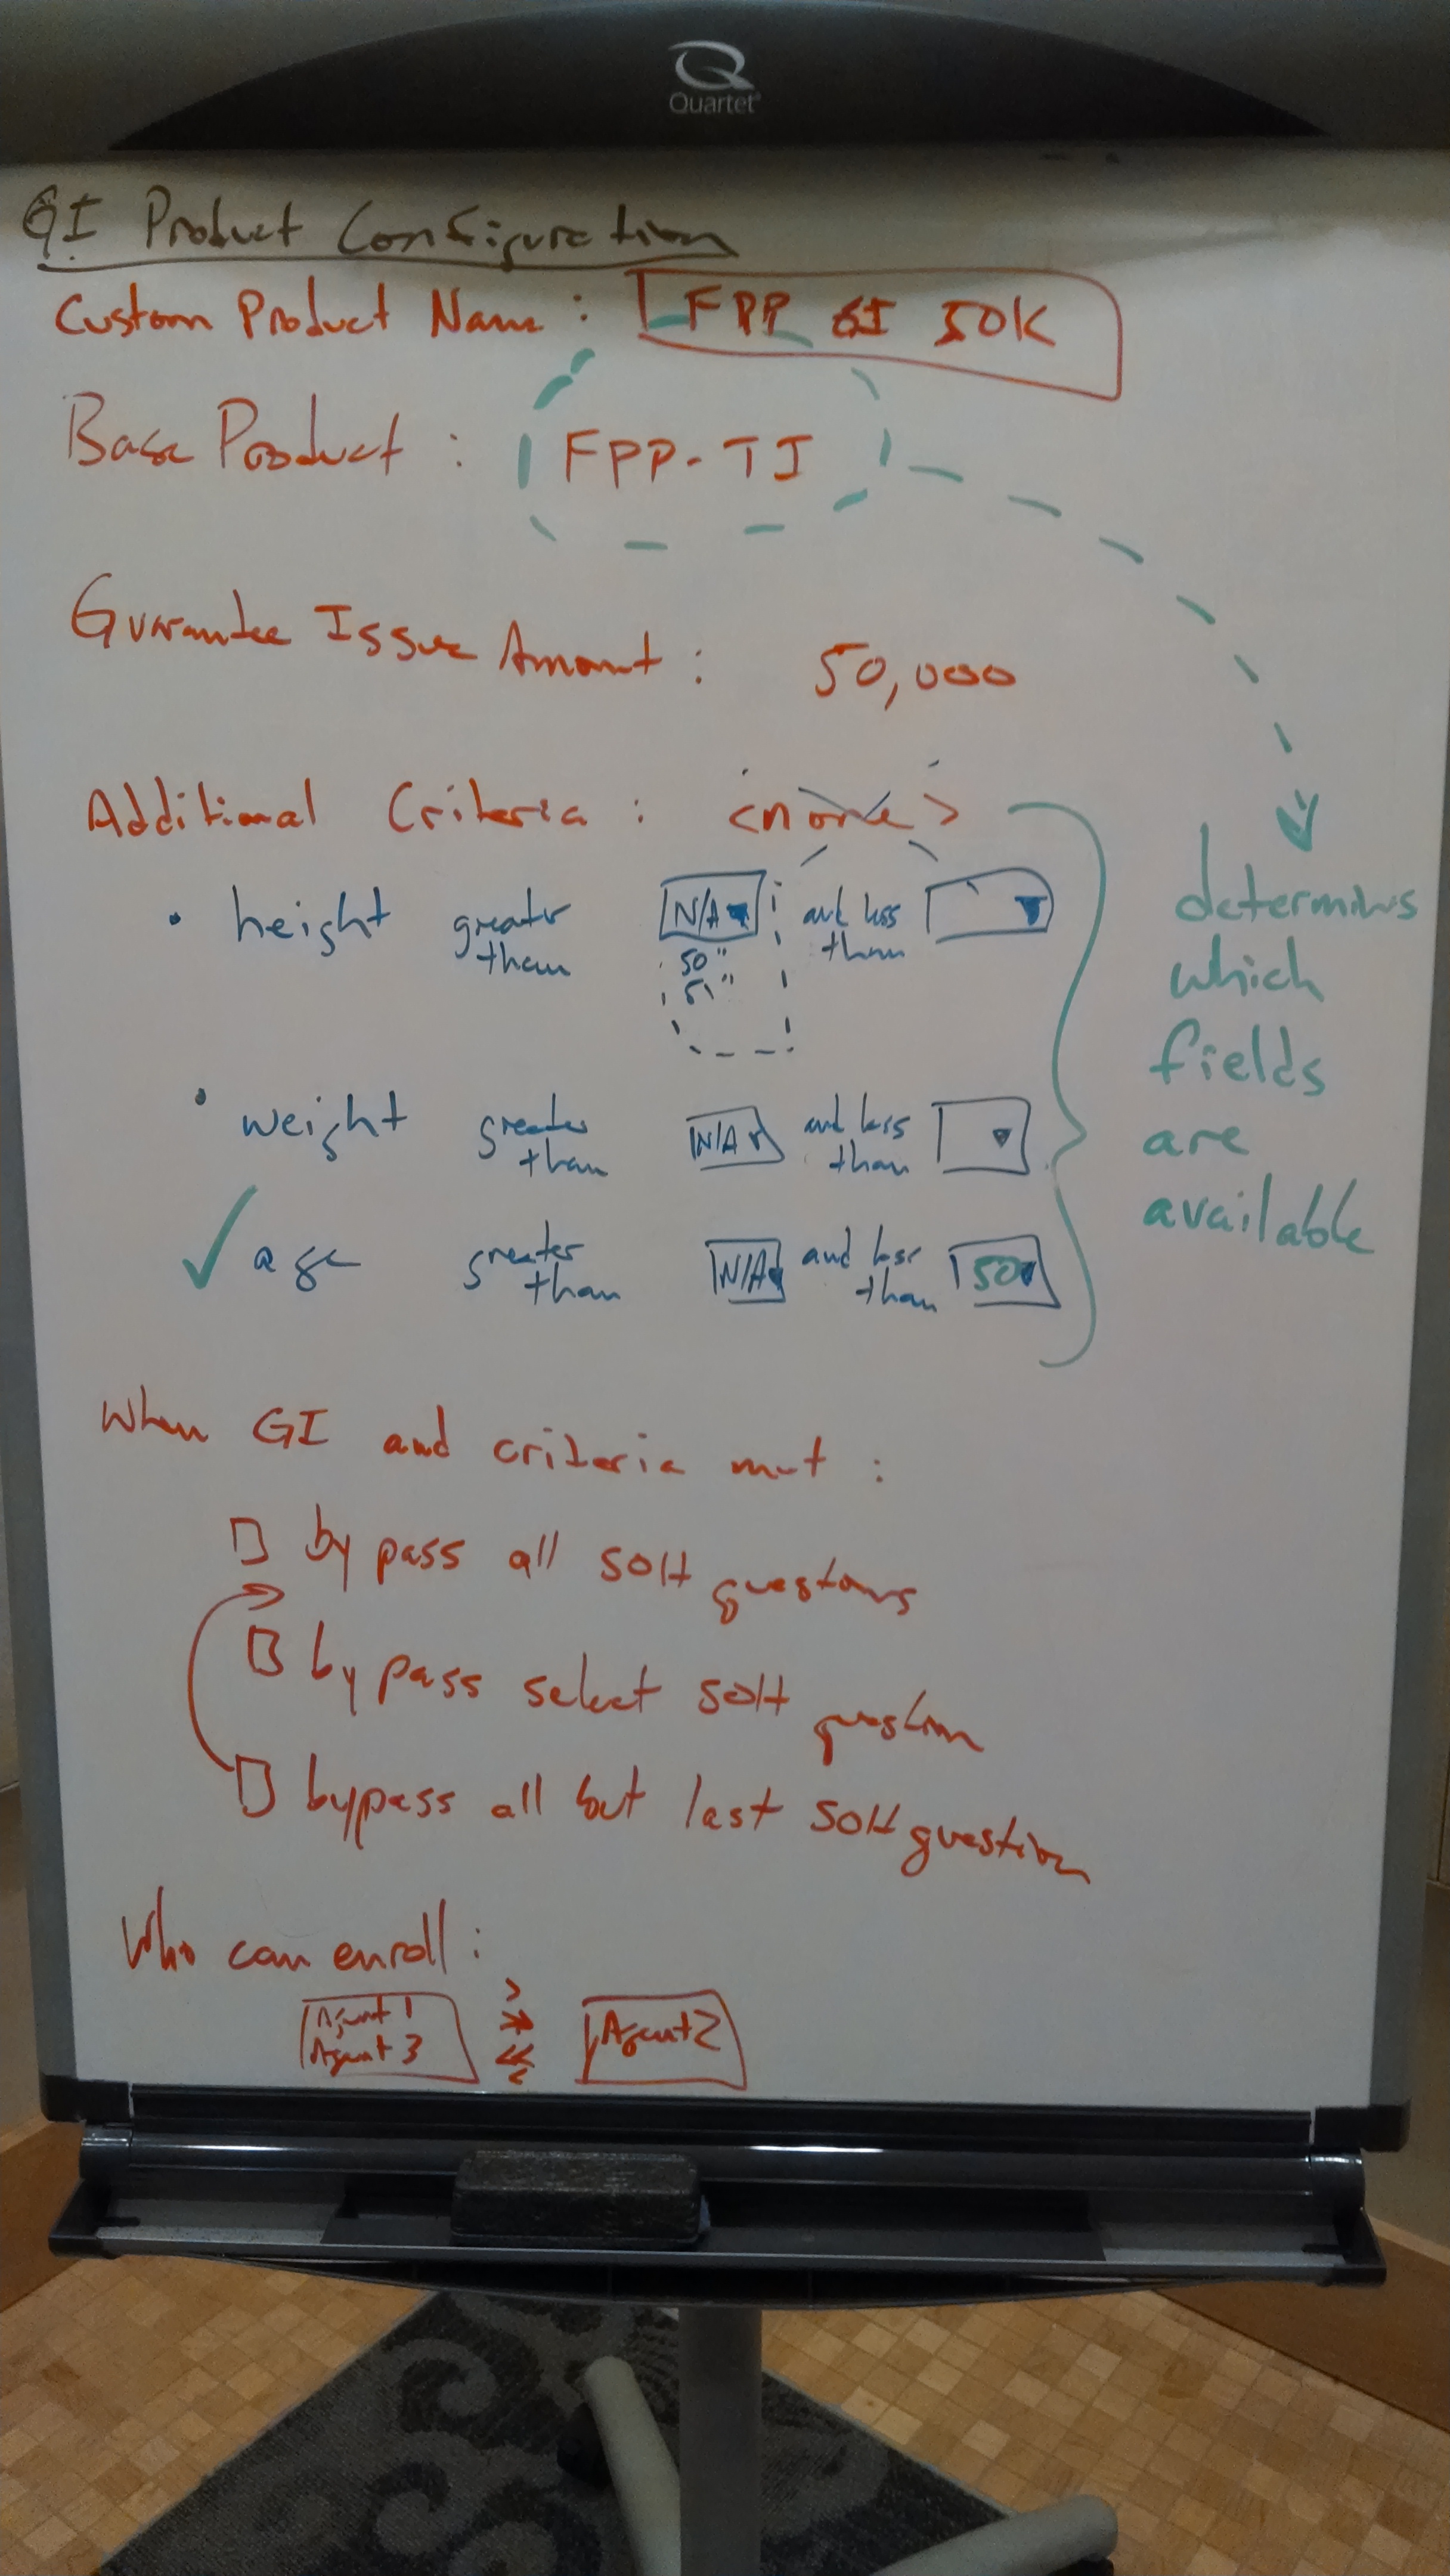 Quartet
GI Product Configuration
Custom Product Name : FPP GI 50K
Base Product : FPP-TI
Guarantee Issue Amount : 50,000
Additional Criteria : <none>
• height greater than N/A and less than
50"
51"
• weight greater than N/A and less than
✓ age greater than N/A and less than 50
determines
which
fields
are
available
When GI and criteria met :
bypass all SOH questions
bypass select SOH question
bypass all but last SOH question
Who can enroll :
Agent 1
Agent 3
>
>>
<<
<
Agent 2